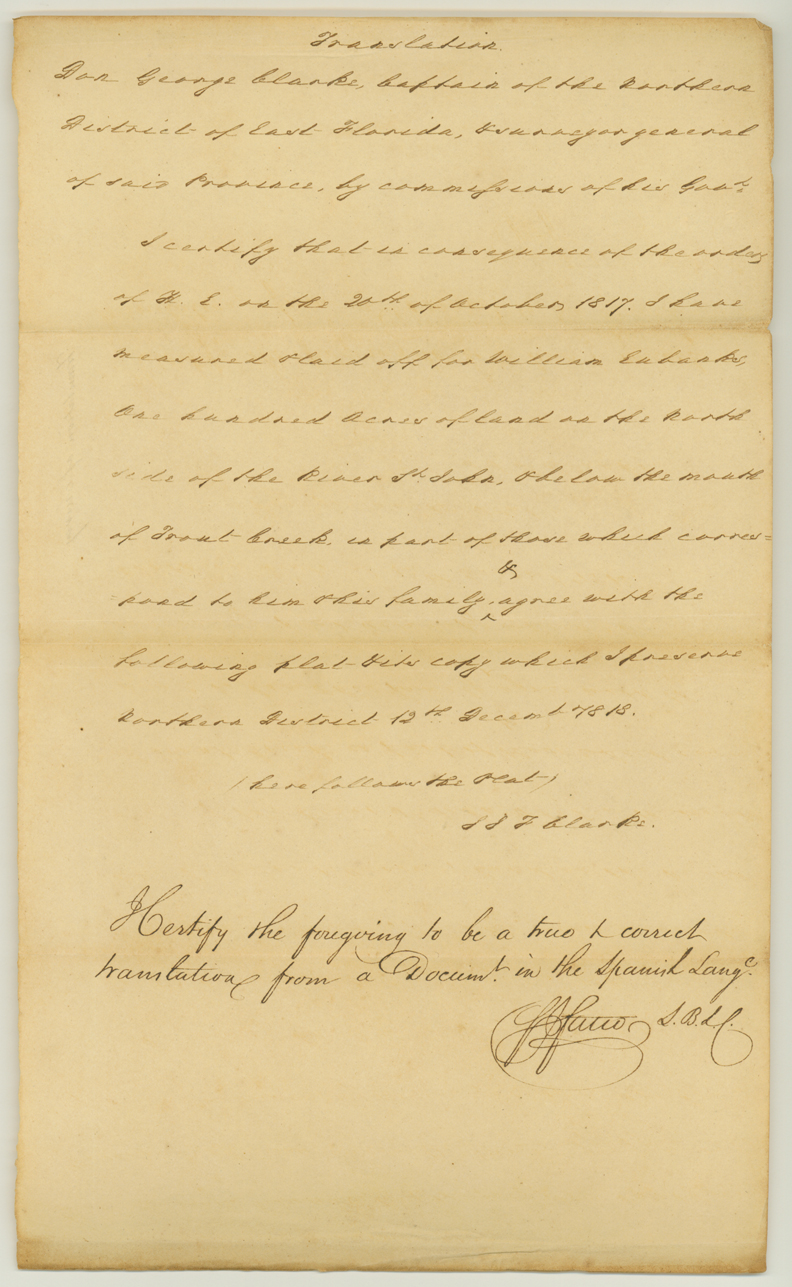 Translation.
Don George Clarke, Captain of the Northern
District of East Florida, & surveyor general
of said Province, by commissions of his Govt.
I certify that in consequence of the orders
of H. E. on the 20th of October, 1817. I have
measured & laid off for William Eubanks,
One hundred Acres of land on the North
side of the River St. John, & below the mouth
of Trout Creek, in part of those which corres=
pond to him & his family, & agree with the
following plat & its copy which I preserve
Northern District 12th Decemr. 1818.
(here follows the Plat)
Clarke.
I Certify the foregoing to be a true & correct
translation from a Documt. in the Spanish Lange.